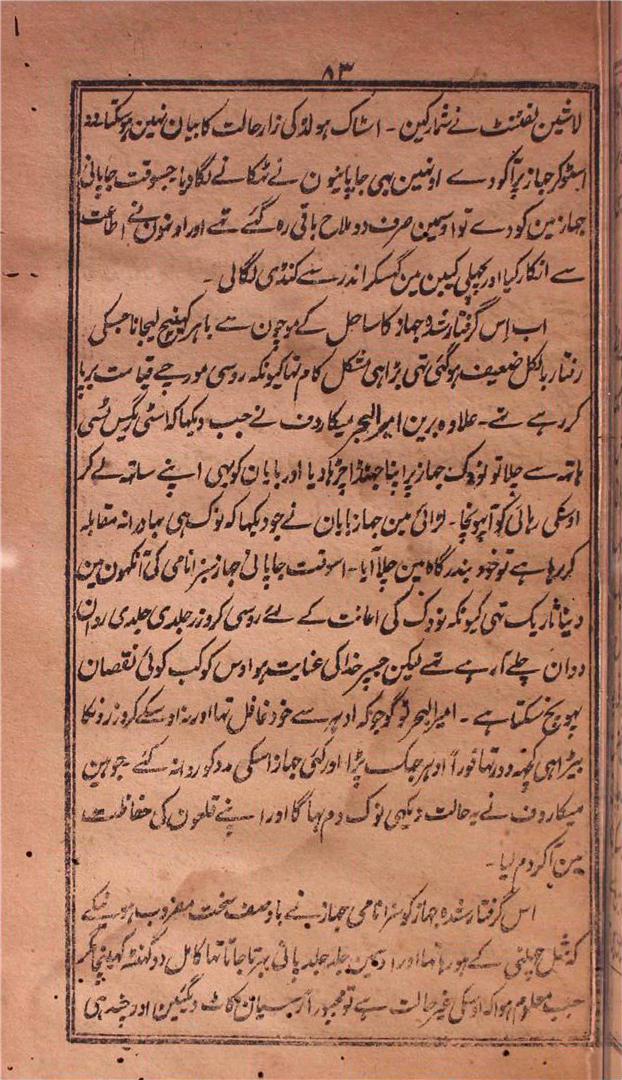 ۸۳
لاشین لفٹننٹ نے شمار کین ۔ اسٹاک ہولڈ کی زار حالت کا بیان نہین ہوسکتا دو
اسٹوکر جہاز پر آکودے اونہین بہی جاپانیون نے ٹہکانے لگا دیا جسوقت جاپانی
جہاز مین کودے تو اوسمین صرف دو ملاح باقی رہ گئے تہے اور اونہون نے اطاعت
سے انکار کیا اور پچہلی کیبن مین گہسکر اندر سے کنڈی لگالی ۔
اب اِس گرفتار شدہ جہاز کا ساحل کے موجون سے باہر کہنیچ لیجانا جسکی
رفتار بالکل ضعیف ہوگئی تہی بڑا ہی مشکل کام تہا کیونکہ روسی مورچے قیامت برپا
کر رہے تہے ۔ علاوہ برین امیر البحر میکاروف نے جب دیکہا کہ اسٹی ریگس ٹسی
ہاتہ سے چلا تو نووک جہاز پر اپنا جہنڈا چڑہا دیا اور بایان کو بہی اپنے ساتہ لے کر
اوسکی رہائی کو آپہونچا ۔ لڑائی مین جہاز بایان نے جو دیکہا کہ نووک ہی بہادرانہ مقابلہ
کر رہا ہے تو خود بندرگاہ مین چلا آیا ۔ اسوقت جاپانی جہاز سزانامی کی آنکہون مین
دنیا تاریک تہی کیونکہ نووک کی اعانت کے لئے روسی کروزر جلدی جلدی روان
دوان چلے آ رہے تہے لیکن جسپر خدا کی عنایت ہو اوس کو کب کوئی نقصان
پہونچ سکتا ہے ۔ امیر البحر ٹوگو جو کہ ادہر سے خود غافل نہ تہا اور نہ اوسکے کروزرونکا
بیڑا ہی کچہ دور تہا فوراً اودہر جہک پڑا اور کئی جہاز اسکی مدد کو روانہ کئے ۔ جوہین
میکاروف نے یہ حالت دیکہی نوک دم بہاگا اور اپنے قلعون کی حفاظت
مین آکر دم لیا ۔
اس گرفتار شدہ جہاز کو سزانامی جہاز نے باوصف سخت مضروب ہونیکے
کہ مثل چہلنی کے ہو رہا تہا اور اوسمین جلد جلد پانی بہرتا جاتا تہا کامل دو گہنٹہ کہینچا مگر
جب معلوم ہوا کہ اوسکی غیر حالت ہے تو مجبوراً رسیان کاٹ دیگئین اور چند ہی